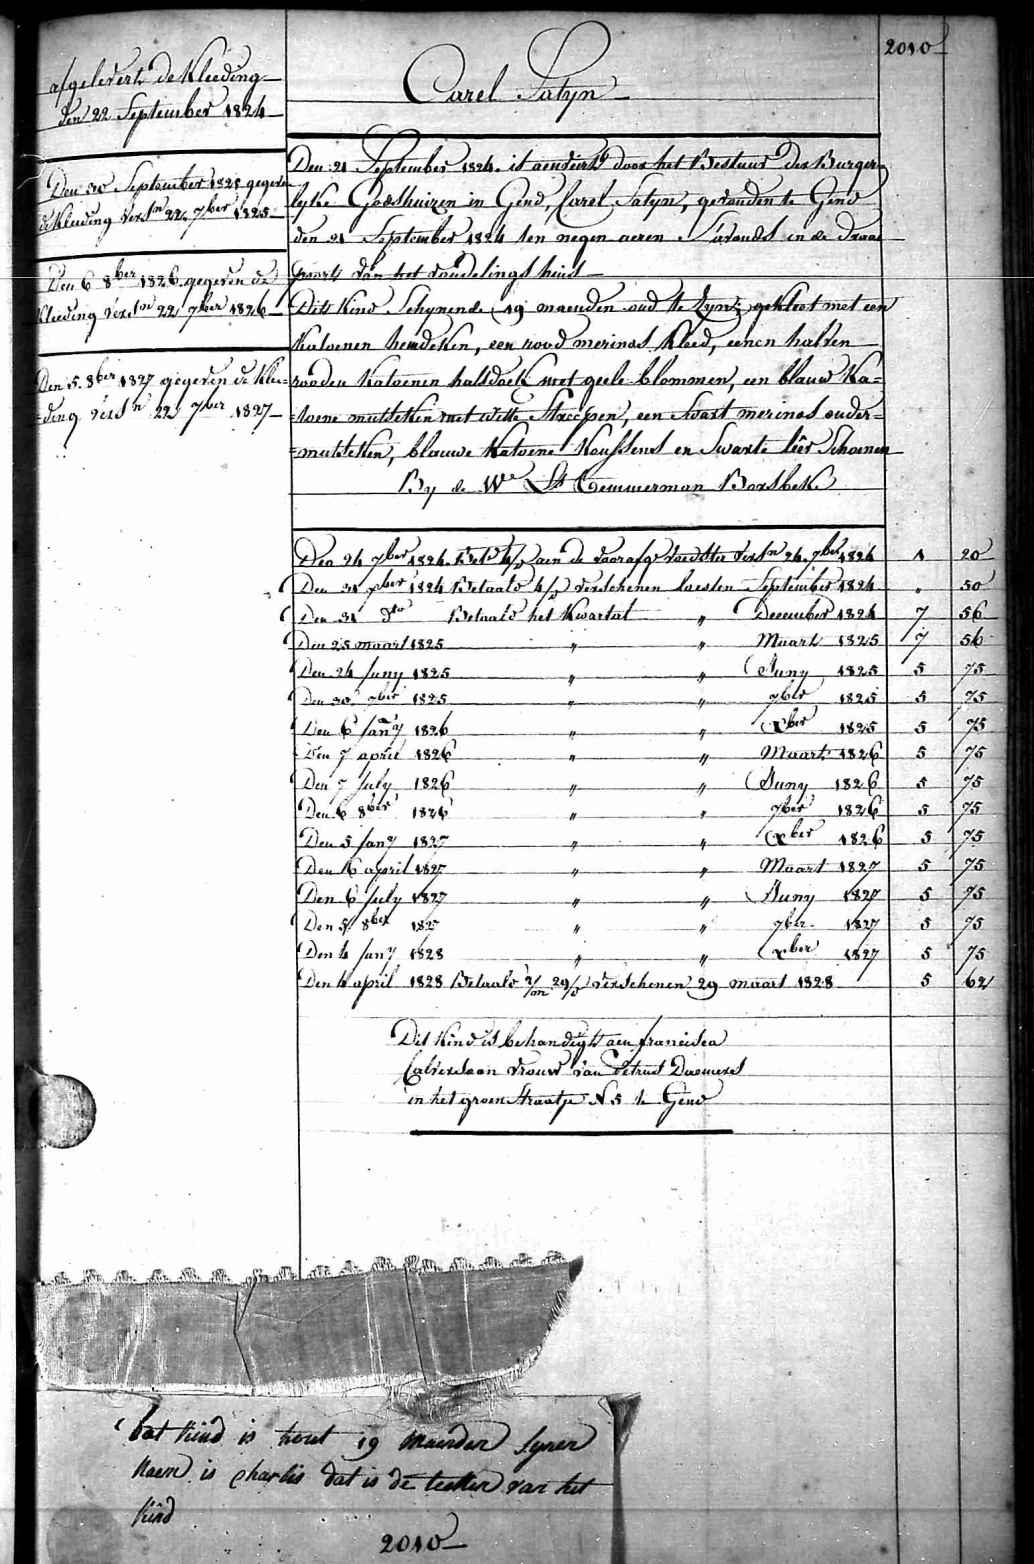 2010
Carel Satyn
afgeleverd de Kleeding
den 22 September 1824
Den 30 September 1825 gegeven
de Kleeding versn 22 7ber 1825
Den 6 8ber 1826 gegeven de
Kleeding versn 22 7ber 1826
Den 5. 8ber 1827 gegeven de Klee=
=ding versn 22 7ber 1827
Den 21 September 1824. is aenveird door het Bestuur der Burger
lyke Godshuizen in Gend, Carel Satyn, gevonden te Gend
den 21 September 1824 ten negen aeren S'avonds in de Draai
poorte van het vondelingshuis
Dits Kind Schynende 19 maenden oud te zyn, gekleet met een
Katoenen hemdeken, een rood merinos Kleed, eenen halven
rooden Katoenen halsdoek met geele blommen, een blauw Ka=
=toene mutsken met witte Streepen, een Swart merinos onder=
=mutsken, blauwe Katoene Koussens en Swarte leêr Schoenen
By de We Ls Temmerman Borsbeke
Den 24 7ber 1824. Betd aen de voorafg voedster versn 24. 7ber 1824 1 20
Den 31 xber 1824 Betaald verschenen laesten September 1824 " 50
Den 31 dto Betaald het Kwartal " December 1824 7 56
Den 25 maart 1825 " " Maart 1825 7 56
Den 24 Juny 1825 " " Juny 1825 5 75
Den 30 7ber 1825 " " 7ber 1825 5 75
Den 6 Jany 1826 " " Xber 1825 5 75
Den 7 april 1826 " " Maart 1826 5 75
Den 7 July 1826 " " Juny 1826 5 75
Den 6 8ber 1826 " " 7ber 1826 5 75
Den 5 Jany 1827 " " Xber 1826 5 75
Den 16 april 1827 " " Maart 1827 5 75
Den 6 July 1827 " " Juny 1827 5 75
Den 5 8ber 1827 " " 7ber 1827 5 75
Den 4 Jany 1828 " " Xber 1827 5 75
Den 4 april 1828 Betaald verschenen 29 maart 1828 5 62
Dit Kind is behandigt aen francisca
vrouw van Petrus
in het groen Straatje N 5 te Gend
dat kind is hout 19 Maenden synen
Naem is charles dat is de teeken van het
kind
2010